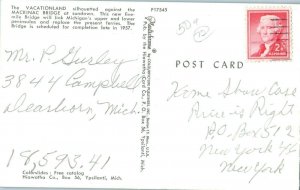 The VACATIONLAND silhouetted against the
MACKINAC BRIDGE at sundown. This new five mile
Bridge will link Michigan's upper and lower
peninsulas and replace the present ferries. The
Bridge is scheduled for completion late in 1957.
P17543
50¢
2¢
POST CARD
Mr. P Gurley
3844 Campbell
Dearborn, Mich.
18,593.41
Home Show Case
Price is Right
P.O. Box 512
New York 46
New York
Colorslides: Free catalog
Hiawatha Co., Box 56, Ypsilanti, Mich.